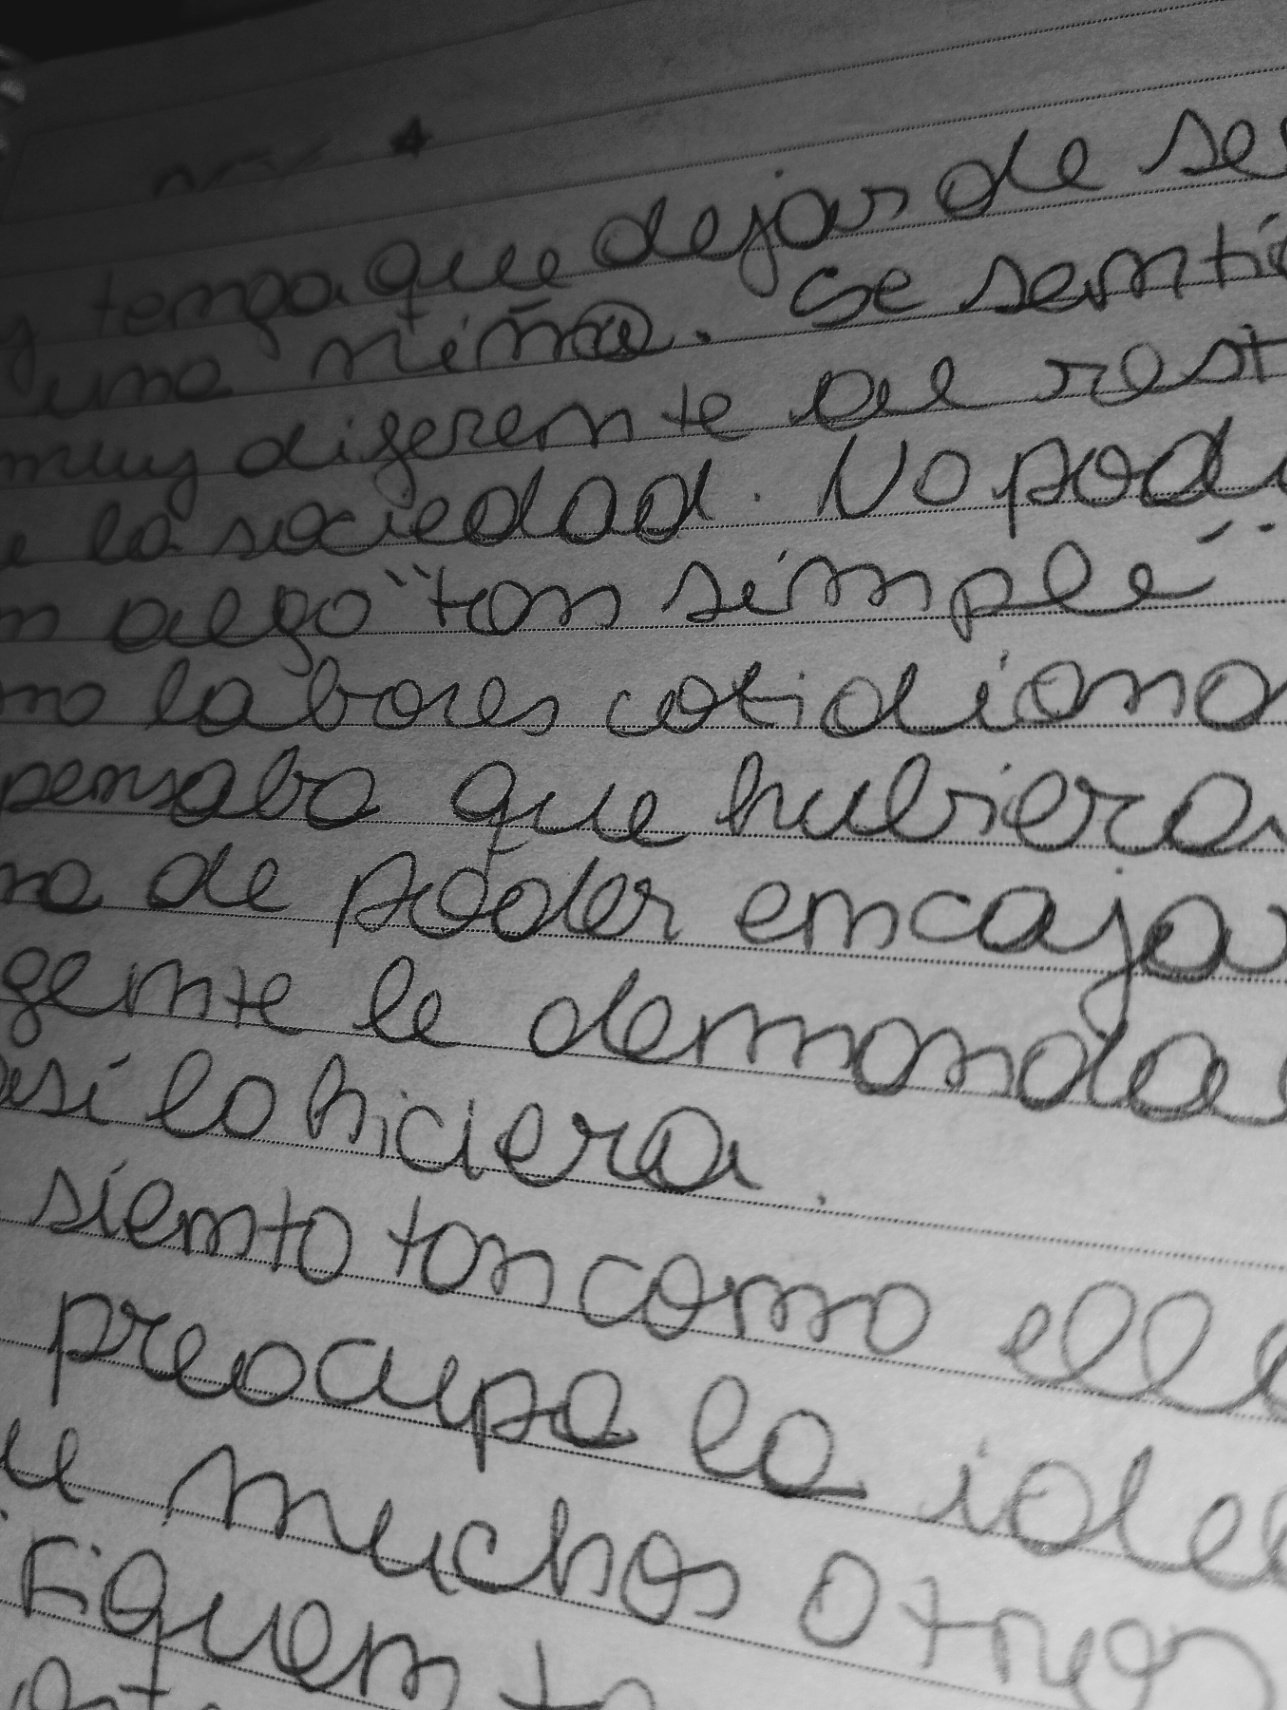 y tenga que dejar de se
una niña. Se sentía
muy diferente al rest
e la sociedad. No podí
n algo "tan simple"
mo labores cotidiana
pensaba que hubieras
na de poder encajar
gente le demanda
así lo hiciera.
siento tan como ella
preocupa la idea
ue muchos otros
tifiquen